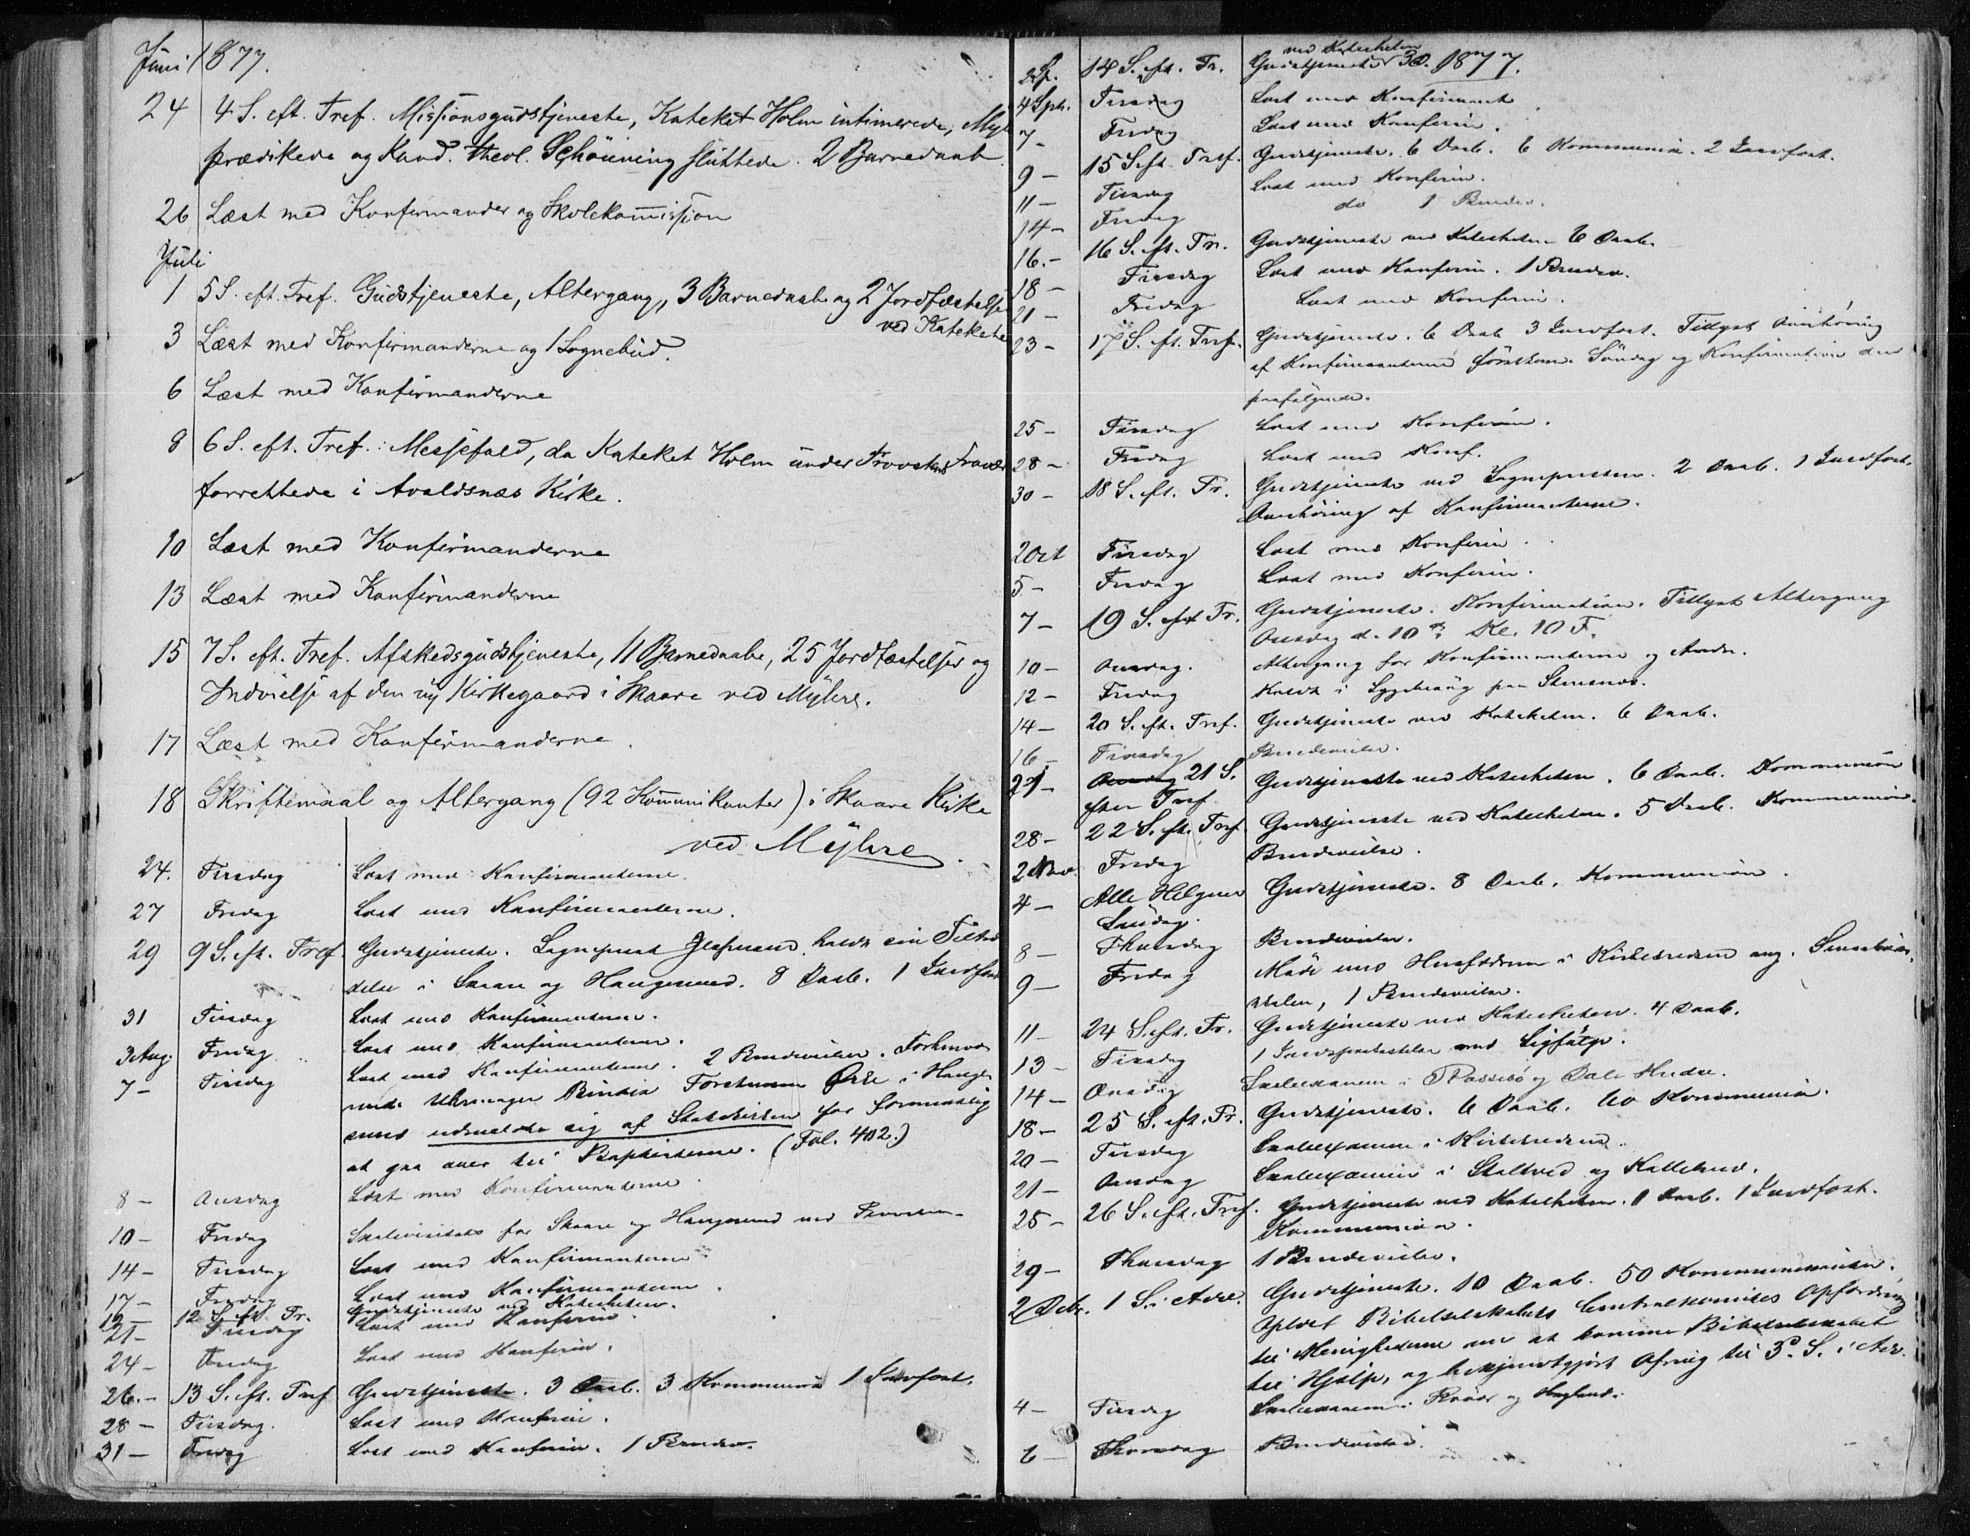 Juni 1877.
24 4 S. eft. Tref. Missionsgudstjeneste, Kateket Holm intimerede,
prædikede og Kand. theol. Schönning sluttede. 2 Barnedaab
26 Læst med Konfirmander og Skolekommission
Juli
1 5 S. eft. Tref. Gudstjeneste, Altergang, 3 Barnedaab og 2 Jordfæstelser
ved Kateketen
3 Læst med Konfirmanderne og 1 Sognebud.
6 Læst med Konfirmanderne
8 6 S. eft. Tref. Messefald, da Kateket Holm under Provstens Fravær
forrettede i Avaldsnæs Kirke.
10 Læst med Konfirmanderne
13 Læst med Konfirmanderne
15 7 S. eft. Tref. Afskedsgudstjeneste, 11 Barnedaabe, 25 Jordfæstelser og
Indvielse af den ny Kirkegaard i Skaare ved Myhre.
17 Læst med Konfirmanderne.
18 Skriftemaal og Altergang (92 Kommunikanter) i Skaare Kirke
ved Myhre.
24. Tirsdag Læst med Konfirmanterne.
27 Fredag Læst med Konfirmanterne.
29 9 S. eft. Tref. Gudstjeneste. Sognepræst holdt sin Tiltræ-
delse i Skaare og Haugesund. 8 Daab. 1 Jordfæst
31 Tirsdag Læst med Konfirmanterne.
3 Aug. Fredag Læst med Konfirmanterne.
7 – Tirsdag Læst med Konfirmanterne. 2 Brudevielser.
i Hauge-
sund udmeldte sig af Statskirken for formentlig
at gaa over til Baptisterne. (Fol. 402.)
8 – Onsdag Læst med Konfirmanterne.
10 – Fredag Skolevisitats for Skaare og Haugesund ved Provsten.
14 – Tirsdag Læst med Konfirmanterne.
17 – Fredag Læst med Konfirmanterne.
19 – 12 S. eft. Tr. Gudstjeneste ved Katecheten.
21 – Tirsdag Læst med Konfirm.
24 – Fredag Læst med Konfirm.
26. – 13 S. eft. Tref Gudstjeneste. 3 Daab. 3 Kommunio 1 Jordfæst.
28 – Tirsdag. Læst med Konfirm.
31 – Fredag Læst med Konfirm. 1 Brudev.
2 Sp. 14 S. eft. Tr. Gudstjeneste ved Katecheten 3 D. 1877.
4 Sptr. Tirsdag Læst med Konfirmant
7 – Fredag Læst med Konfirm.
9 – 15 S. eft. Tref. Gudstjeneste. 6 Daab. 6 Kommunio. 2 Jordfæst.
11 – Tirsdag Læst med Konfirm.
14 – Fredag do 1 Brudev.
16. – 16 S. eft. Tr. Gudstjeneste ved Katecheten 6 Daab.
18 – Tirsdag Læst med Konfirm. 1 Brudev.
21 – Fredag Læst med Konfirm.
23 – 17 S. eft. Tref. Gudstjeneste. 6 Daab 3 Jordfæst. Tillyst Overhøring
af Konfirmanterne førstkom. Søndag og Konfirmation den
paafølgende.
25 – Tirsdag Læst med Konfirm.
28 – Fredag Læst med Konf.
30 – 18 S. eft. Tr. Gudstjeneste ved Sognepresten. 2 Daab. 1 Jordfæst.
Overhøring af Konfirmanterne.
2 Oct Tirsdag Læst med Konfirm.
5 – Fredag Læst med Konfirm.
7 – 19 S. eft Tr. Gudstjeneste. Konfirmation. Tillyst Altergang
Onsdag d. 10de Kl. 10 F.
10 – Onsdag. Altergang for Konfirmanterne og Andre.
12 – Fredag Kaldt i Sygebesøg paa
14 – 20 S. eft. Tref. Gudstjeneste ved Katecheten. 6 Daab.
16 – Tirsdag Brudevielse.
21 – 21 S. Gudstjeneste ved Katecheten. 6 Daab. Kommunion
efter Tref.
28 – 22 S. eft. Tref. Gudstjeneste ved Katecheten. 5 Daab. Kommunion.
2 Nov. Fredag Brudevielse.
4 – Alle Helgens Gudstjeneste. 8 Daab. Kommunion.
Søndag.
8 – Thorsdag Brudevielse.
9 – Fredag Møde med Husfædrene i Kirkekredsen ang. Smaabørns-
skolen, 1 Brudevielse.
11 – 24 S. eft. Tr. Gudstjeneste ved Katecheten. 4 Daab.
13 – Tirsdag 1 med Ligfølge.
14 – Onsdag Skoleexamen i og
18 – 25 S. eft. Tr. Gudstjeneste. 6 Daab. 60 Kommunio.
20 – Tirsdag Skoleexamen i Kirkekredsen.
21 – Onsdag Skoleexamen i og
25 – 26 S. eft. Tref. Gudstjeneste ved Katecheten. 1 Daab. 1 Jordfæst.
Kommunion.
29 – Thorsdag 1 Brudevielse.
2 Decbr. 1 S. i Adv. Gudstjeneste. 10 Daab. 50 Kommunicanter.
Oplæst Bibelselskabets Centralkomites Opfordring
til Menighederne om at komme Bibelselskabet
til Hjælp, og bekjendtgjort Ofring til 3. S. i Adv.
4 – Tirsdag Skoleexamen i og
6 – Thorsdag Brudevielse.